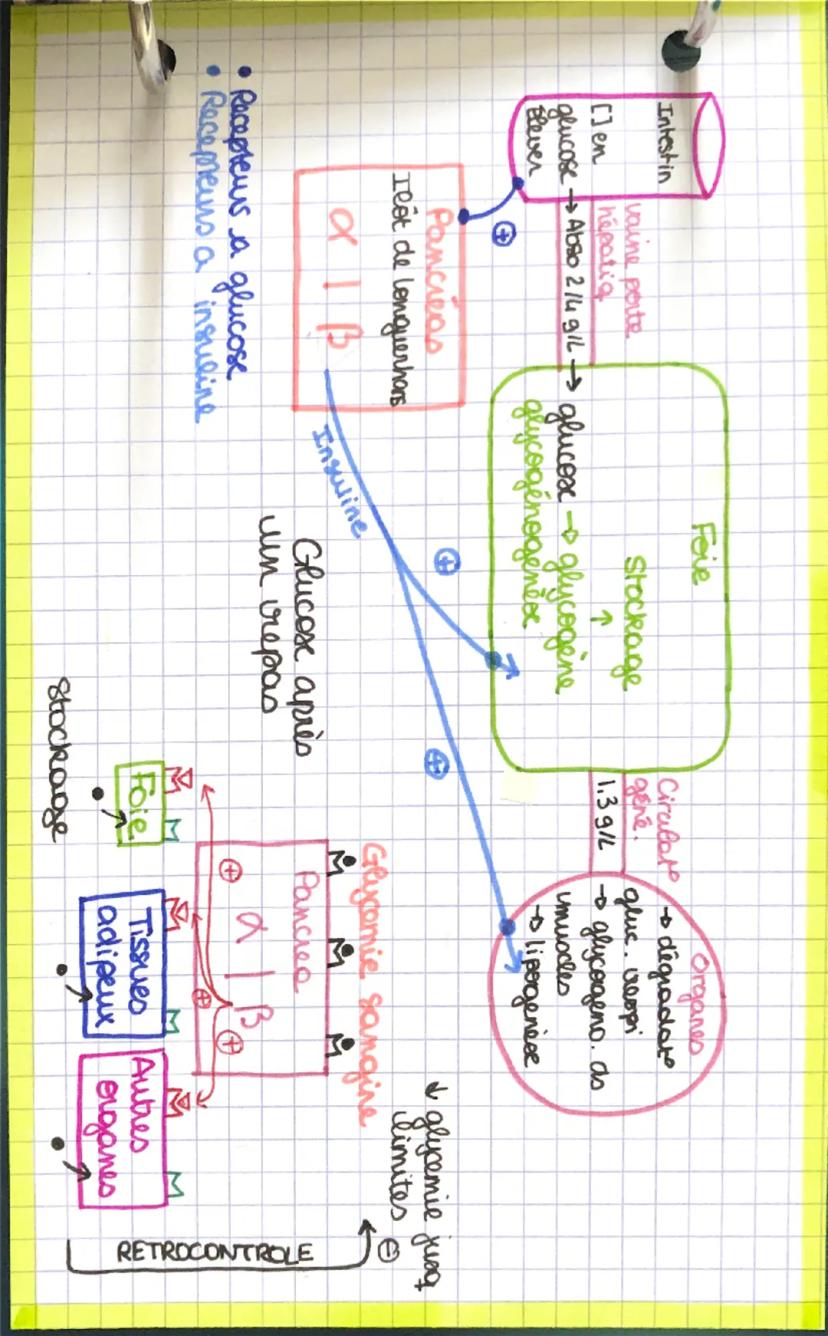 Intestin
[] en
glucose → Abso 2/4 g/L → glucose → glycogène
élever
vaine porte
hépatiq
Foie
Stockage
↑
glycogénogenèse
Circulat°
géné.
1.3 g/L
Organes
→ dégradat°
gluc. respi
→ glycogéno. ds
muscles
→ lipogenèse
⊕
Pancréas
Ilôt de longuerhans
α | β
Insuline
⊕
⊕
• Recepteurs a glucose
• Recepteurs a insuline
Glucose après
un repas
↓ glycemie jusq
limites
Glycemie sangine
Pancrea
α | β
⊕ ⊕ ⊕
Foie
Tissues
adipeux
Autres
organes
Stockage
RETROCONTROLE ⊖